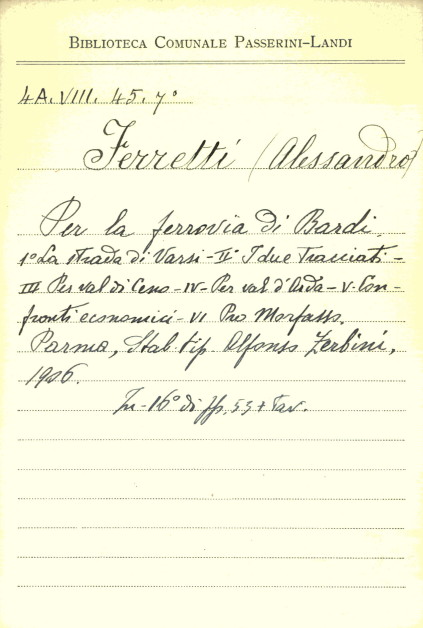 BIBLIOTECA COMUNALE PASSERINI-LANDI
4A.VIII. 45. 7°
Ferretti (Alessandro)
Per la ferrovia di Bardi.
1° La strada di Varsi - II° I due Tracciati -
III Per val di Ceno - IV - Per val d'Arda - V - Con-
fronti economici - VI Pro Morfasso.
Parma, Stab. tip. Alfonso Zerbini,
1906.
In-16° di pp. 53 + Tav.